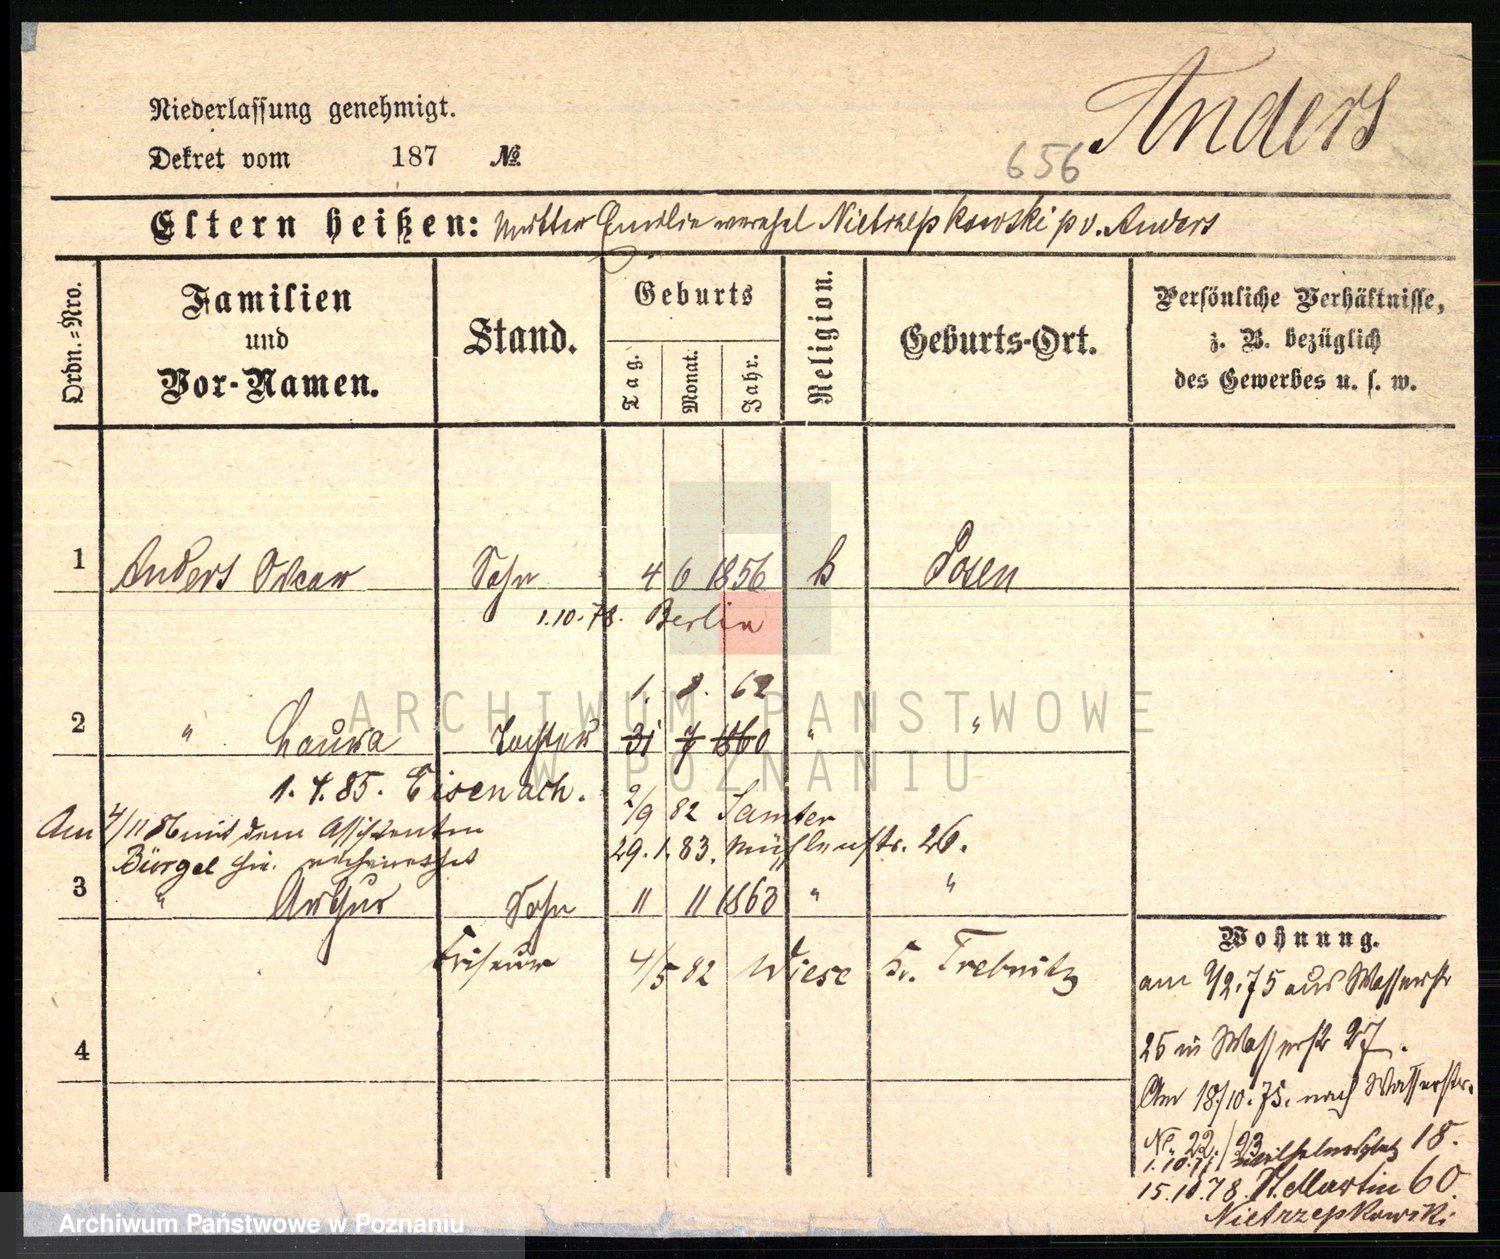 Anders
Niederlassung genehmigt.
Dekret vom 187 №
656
Eltern heißen: Mutter Emilie Nietrzepkowski pv. Anders
Ordn.=Nro.
Familien
und
Vor-Namen.
Stand.
Geburts
Tag.
Monat.
Jahr.
Religion.
Geburts-Ort.
Persönliche Verhältnisse,
z. B. bezüglich
des Gewerbes u. s. w.
1 Anders Oscar Sohn 4 6 1856 Posen
1.10.78. Berlin
1. 8. 62
2 " Laura Tochter 31 7 1860 " "
1.4.85. Eisenach. 2/9 82 Samter
Am 4/11 86 mit dem Assistenten 29.1.83. Mühlenstr. 26.
Bürgel
3 " Arthur Sohn 11 11 1863 " "
Friseur 4/5 82 Wiese Kr. Trebnitz
4
Wohnung.
am 2.75 aus Wasserstr
25 in Wasserstr 27.
Am 18/10.75. nach Wasserstr.
No. 22./23
1.10.77 Wilhelmsplatz 18.
15.10.78. St. Martin 60.
Nietrzepkowski
ARCHIWUM PAŃSTWOWE
W POZNANIU
Archiwum Państwowe w Poznaniu